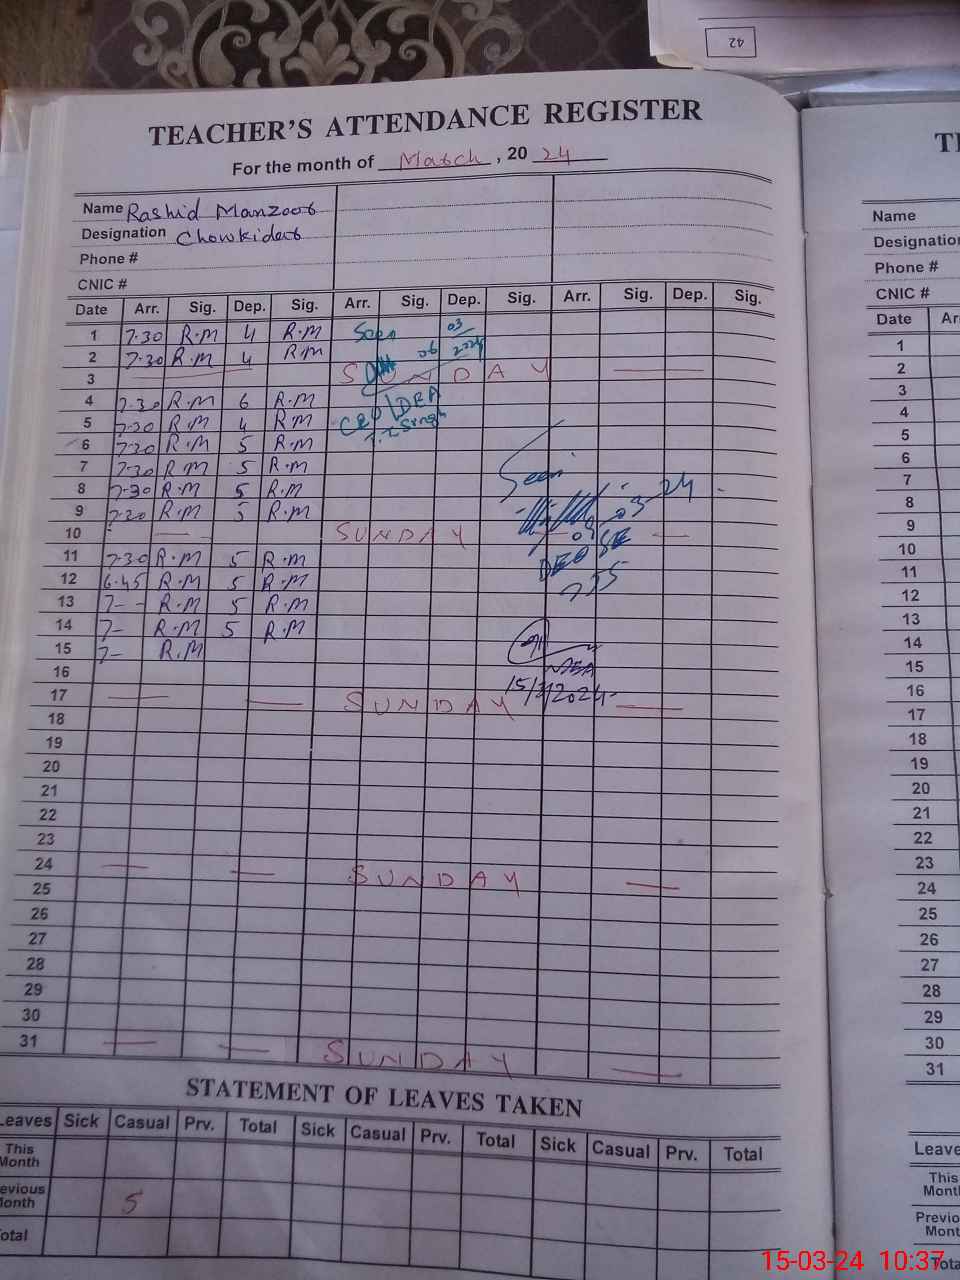 42
TEACHER'S ATTENDANCE REGISTER
For the month of March, 20 24
Name Rashid Manzoor
Designation Chowkider
Phone #
CNIC #
Date Arr. Sig. Dep. Sig. Arr. Sig. Dep. Sig. Arr. Sig. Dep. Sig.
1 7-30 R.M 4 R.M Seen 03
2 7-30 R.M 4 R.M 06 2024
3 SUNDAY
4 7-30 R.M 6 R.M CEO DEA
5 7-30 R.M 4 R.M T.T Singh
6 7-30 R.M 5 R.M
7 7-30 R.M 5 R.M Seen
8 7-30 R.M 5 R.M
9 7-30 R.M 5 R.M 09-03-24
10 SUNDAY
11 7-30 R.M 5 R.M DEO SE
12 6-45 R.M 5 R.M
13 7- R.M 5 R.M
14 7- R.M 5 R.M
15 7- R.M
16 15/3/2024
17 SUNDAY
18
19
20
21
22
23
24 SUNDAY
25
26
27
28
29
30
31 SUNDAY
STATEMENT OF LEAVES TAKEN
Leaves Sick Casual Prv. Total Sick Casual Prv. Total Sick Casual Prv. Total
This Month
evious Month 5
otal
TE
Name
Designation
Phone #
CNIC #
Date Ar
1
2
3
4
5
6
7
8
9
10
11
12
13
14
15
16
17
18
19
20
21
22
23
24
25
26
27
28
29
30
31
Leave
This
Mont
Previo
Mon
Tota
15-03-24 10:37